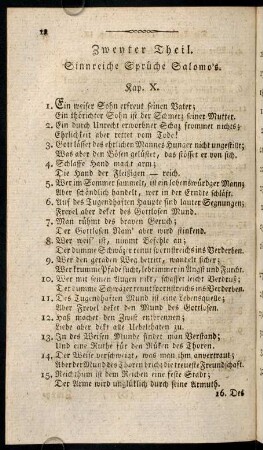 12
Zweyter Theil.
Sinnreiche Sprüche Salomo's.
Kap. X.
1. Ein weiser Sohn erfreut seinen Vater;
Ein thörichter Sohn ist der Schmerz seiner Mutter.
2. Ein durch Unrecht erworbner Schaz frommet nichts;
Ehrlichkeit aber rettet vom Tode!
3. Gott lässet des ehrlichen Mannes Hunger nicht ungestillt;
Was aber den Bösen gelüstet, das stösset er von sich.
4. Schlaffe Hand macht arm;
Die Hand der Fleißigen — reich.
5. Wer im Sommer sammelt, ist ein liebenswürdger Mann;
Aber schändlich handelt, wer in der Erndte schläft.
6. Auf des Tugendhaften Haupt sind lauter Segnungen;
Frevel aber deket des Gottlosen Mund.
7. Man rühmt des braven Geruch;
Der Gottlosen Nam' aber wird stinkend.
8. Wer weis' ist, nimmt Befehle an;
Der dumme Schwäzer rennt spornstreichs ins Verderben.
9. Wer den geraden Weg betritt, wandelt sicher;
Wer krumme Pfade sucht, lebt immer in Angst und Furcht.
10. Wer mit seinen Augen winkt, stiftet lauter Verdruß;
Der dumme Schwäzer rennt spornstreichs ins Verderben.
11. Des Tugendhaften Mund ist eine Lebensquelle;
Aber Frevel deket den Mund des Gottlosen.
12. Haß machet den Zwist entbrennen;
Liebe aber dekt alle Uebelthaten zu.
13. In des Weisen Munde findet man Verstand;
Und eine Ruthe für den Rüken des Thoren.
14. Der Weise verschweigt, was man ihm anvertraut;
Aber der Mund des Thoren bricht die treueste Freundschaft.
15. Reichthum ist dem Reichen eine feste Stadt;
Der Arme wird unglüklich durch seine Armuth.
16. Des